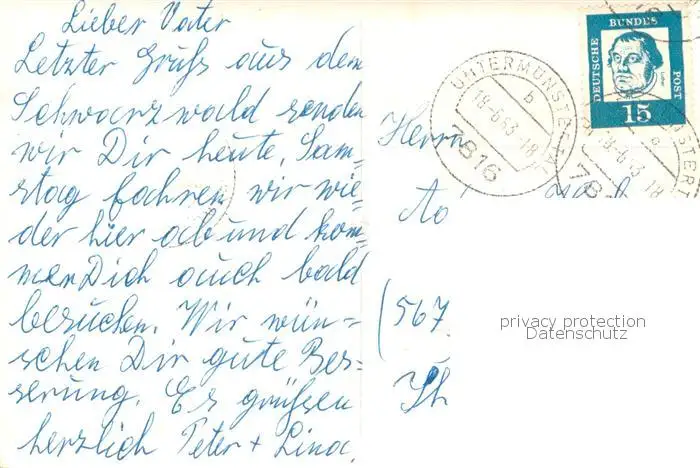 Lieber Vater
Letzter Gruß aus dem
Schwarzwald senden
wir Dir heute. Sam-
stag fahren wir wie-
der hier ab und kom-
men Dich auch bald
besuchen. Wir wün-
schen Dir gute Bes-
serung. Es grüßen
herzlich Peter + Lina.
Herrn
(567
DEUTSCHE BUNDES POST
Luther
15
UNTERMÜNSTERTAL
b
18-6-63-18
7816
privacy protection
Datenschutz